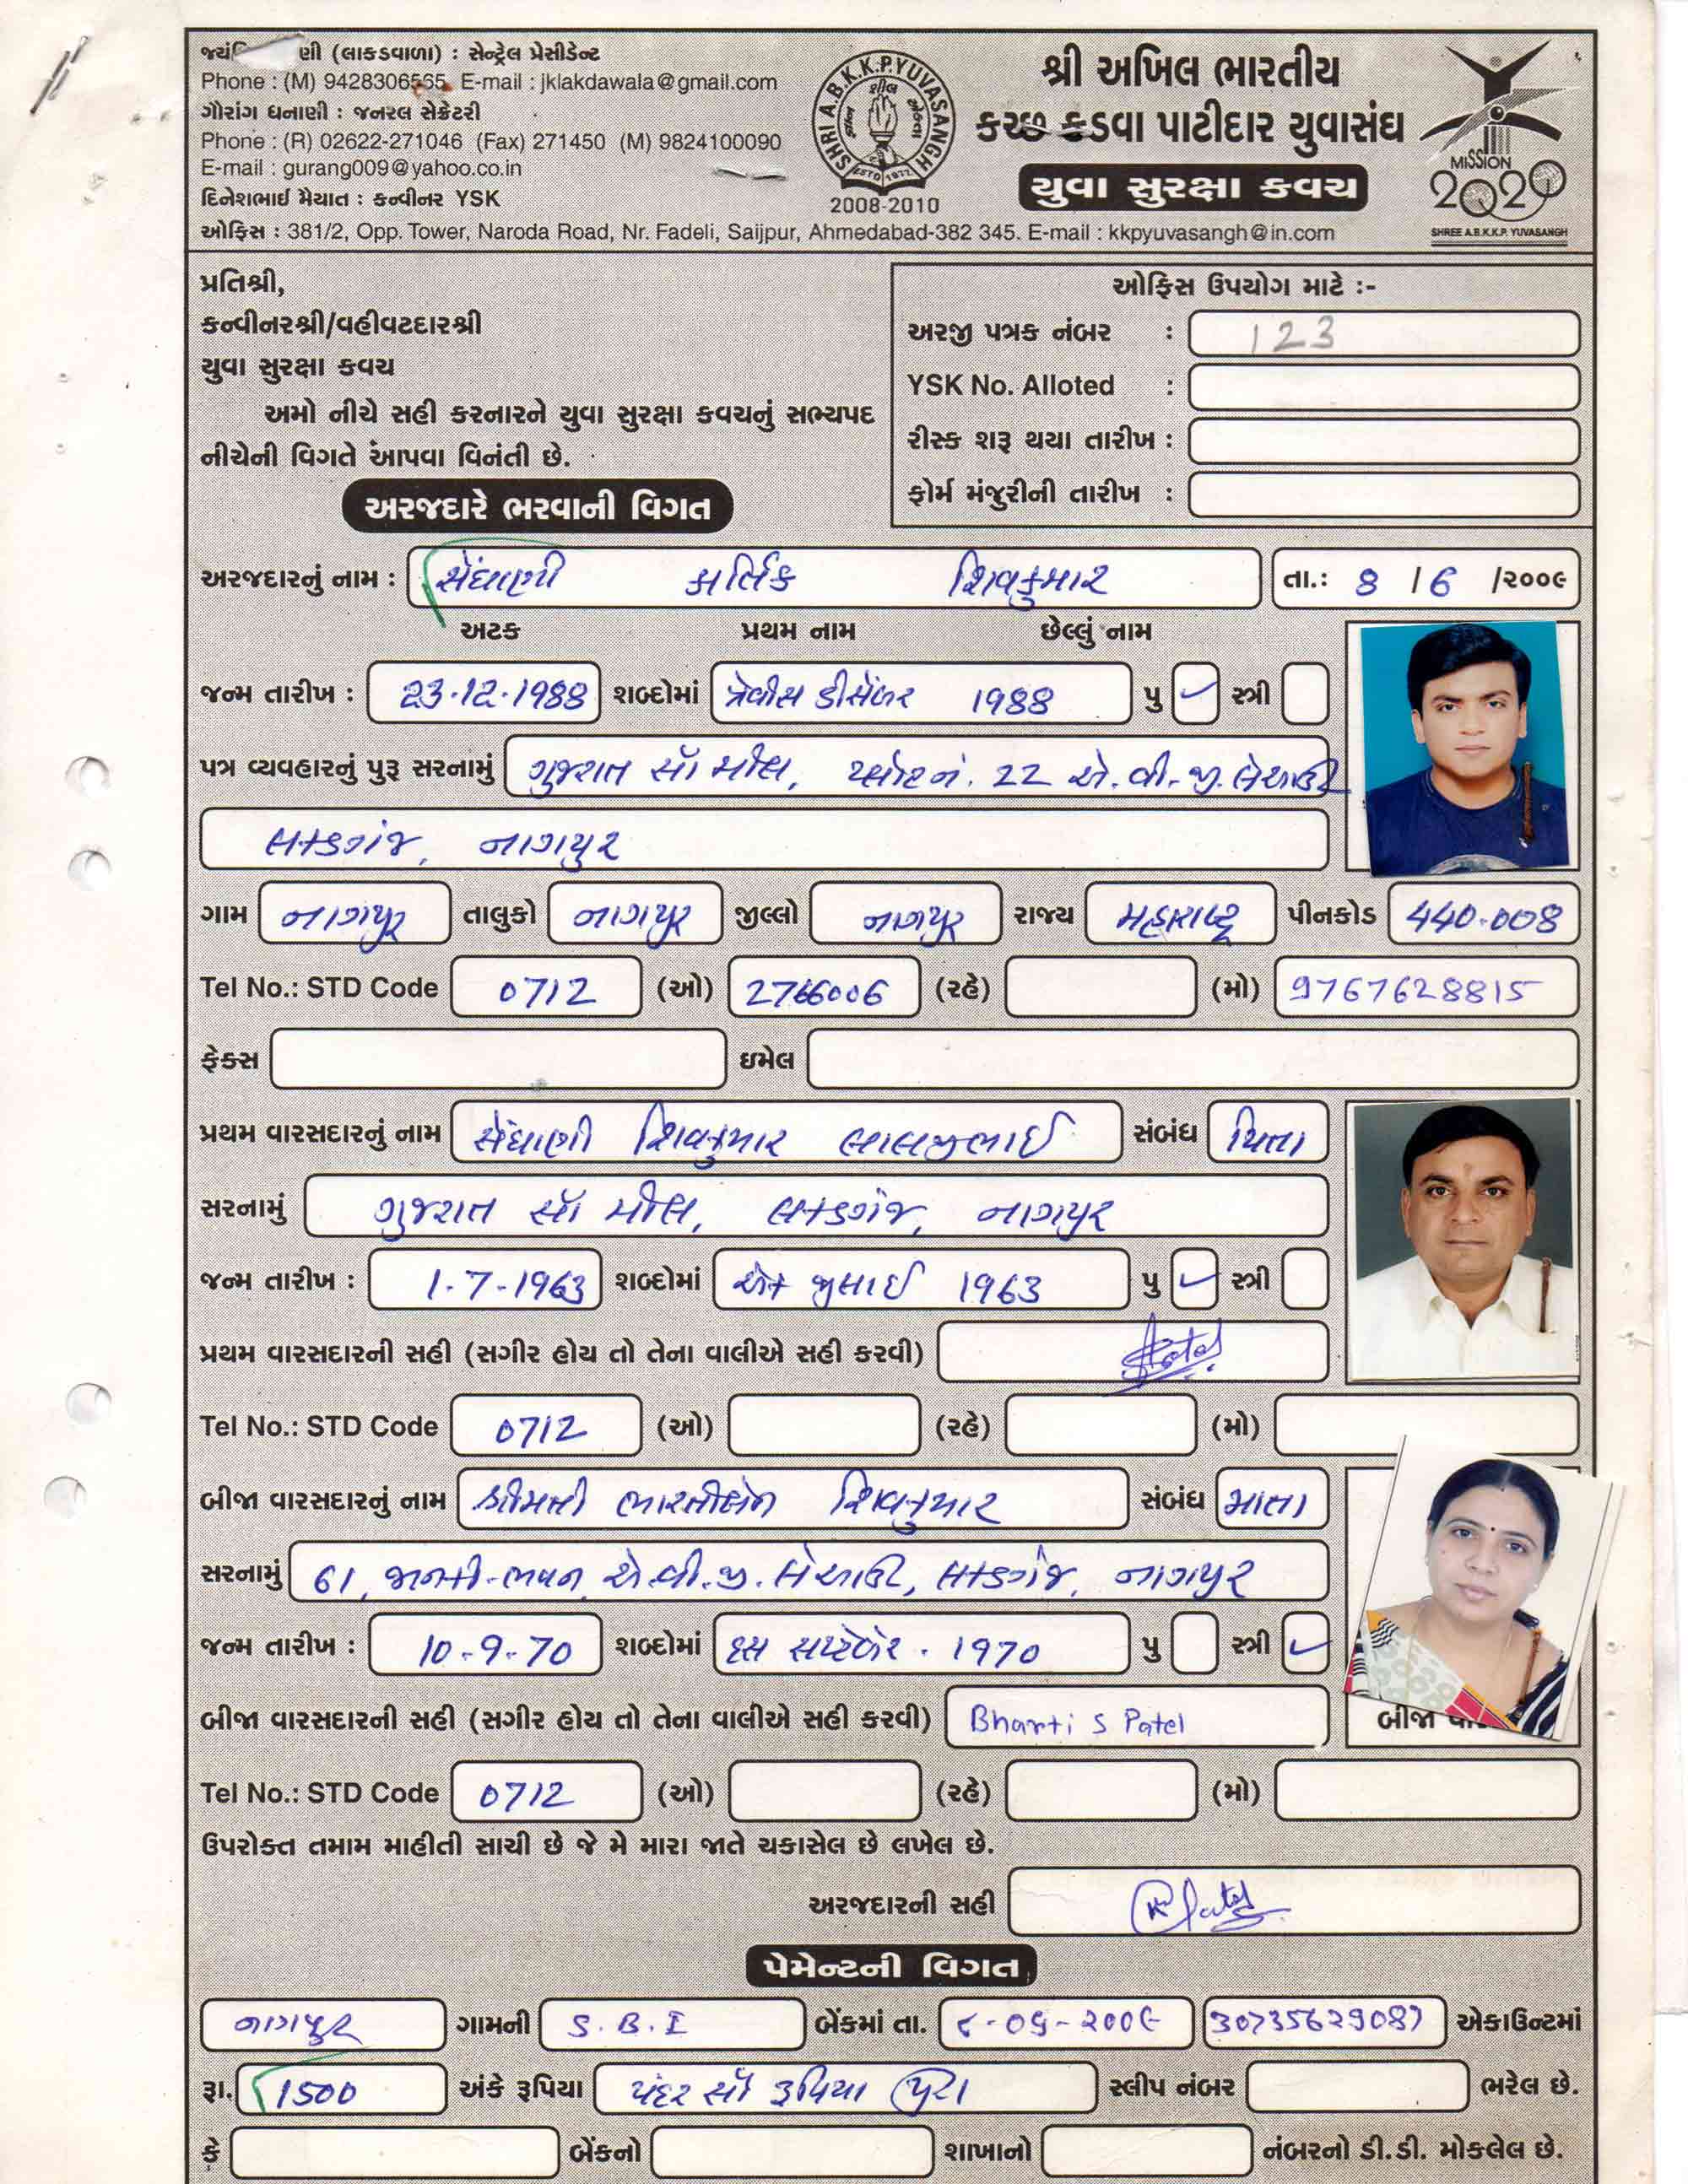 (લાકડવાળા) : સેન્ટ્રેલ પ્રેસીડેન્ટ
Phone : (M) 9428306565 E-mail : jklakdawala@gmail.com
ગૌરાંગ ધનાણી : જનરલ સેક્રેટરી
Phone : (R) 02622-271046 (Fax) 271450 (M) 9824100090
E-mail : gurang009@yahoo.co.in
દિનેશભાઈ મૈયાત : કન્વીનર YSK
SHRI A.B.K.K.P.YUVASANGH
ESTD 1977
2008-2010
શ્રી અખિલ ભારતીય
કચ્છ કડવા પાટીદાર યુવાસંઘ
યુવા સુરક્ષા કવચ
MISSION
2020
SHREE A.B.K.K.P. YUVASANGH
ઓફિસ : 381/2, Opp. Tower, Naroda Road, Nr. Fadeli, Saijpur, Ahmedabad-382 345. E-mail : kkpyuvasangh@in.com
પ્રતિશ્રી,
કન્વીનરશ્રી/વહીવટદારશ્રી
યુવા સુરક્ષા કવચ
અમો નીચે સહી કરનારને યુવા સુરક્ષા કવચનું સભ્યપદ
નીચેની વિગતે આપવા વિનંતી છે.
ઓફિસ ઉપયોગ માટે :-
અરજી પત્રક નંબર : 123
YSK No. Alloted :
રીસ્ક શરૂ થયા તારીખ :
ફોર્મ મંજુરીની તારીખ :
અરજદારે ભરવાની વિગત
અરજદારનું નામ : સેંઘાણી કાર્તિક શિવકુમાર તા.: 8 / 6 /૨૦૦૯
અટક પ્રથમ નામ છેલ્લું નામ
જન્મ તારીખ : 23-12-1988 શબ્દોમાં ત્રેવીસ ડીસેંબર 1988 પુ ✓ સ્ત્રી
પત્ર વ્યવહારનું પુરૂ સરનામું ગુજરાત સૉ મીલ, પ્લોટ નં. 22 એ.વી.જી. લેઆઉટ
લકડગંજ, નાગપુર
ગામ નાગપુર તાલુકો નાગપુર જીલ્લો નાગપુર રાજ્ય મહારાષ્ટ્ર પીનકોડ 440-008
Tel No.: STD Code 0712 (ઓ) 2766006 (રહે) (મો) 9767628815
ફેક્સ ઇમેલ
પ્રથમ વારસદારનું નામ સેંઘાણી શિવકુમાર લાલજીભાઈ સંબંધ પિતા
સરનામું ગુજરાત સૉ મીલ, લકડગંજ, નાગપુર
જન્મ તારીખ : 1-7-1963 શબ્દોમાં એક જુલાઈ 1963 પુ ✓ સ્ત્રી
પ્રથમ વારસદારની સહી (સગીર હોય તો તેના વાલીએ સહી કરવી)
Tel No.: STD Code 0712 (ઓ) (રહે) (મો)
બીજા વારસદારનું નામ શ્રીમતી ભારતીબેન શિવકુમાર સંબંધ માતા
સરનામું 61, જાનકી-ભવન, એ.વી.જી. લેઆઉટ, લકડગંજ, નાગપુર
જન્મ તારીખ : 10-9-70 શબ્દોમાં દસ સપ્ટેંબર - 1970 પુ સ્ત્રી ✓
બીજા વારસદારની સહી (સગીર હોય તો તેના વાલીએ સહી કરવી) Bharti S Patel બીજા
Tel No.: STD Code 0712 (ઓ) (રહે) (મો)
ઉપરોક્ત તમામ માહીતી સાચી છે જે મે મારા જાતે ચકાસેલ છે લખેલ છે.
અરજદારની સહી
પેમેન્ટની વિગત
નાગપુર ગામની S.B.I બેંકમાં તા. ૮-૦૬-૨૦૦૯ 30735629087 એકાઉન્ટમાં
રૂા. 1500 અંકે રૂપિયા પંદર સૉ રૂપિયા પુરા સ્લીપ નંબર ભરેલ છે.
કે બેંકનો શાખાનો નંબરનો ડી.ડી. મોકલેલ છે.